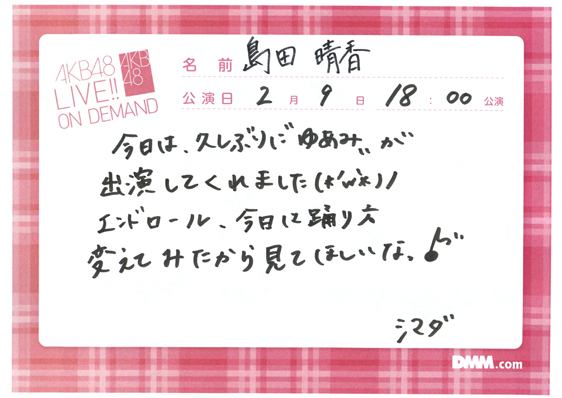 AKB48
LIVE!!
ON DEMAND
AKB
48
名前 島田 晴香
公演日 2月9日 18:00公演
今日は、久しぶりに"ゆあみ"が
出演してくれました(*'ω'*)ノ
エンドロール、今日は踊り方
変えてみたから見てほしいな。♪
シマダ
DMM.com